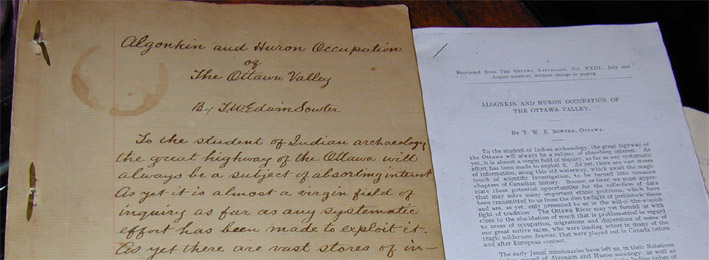 Algonkin and Huron Occupation
of
The Ottawa Valley
By T.W. Edwin Sowter
To the student of Indian archaeology
the great highway of the Ottawa will
always be a subject of absorbing interest
As yet it is almost a virgin field of
inquiry as far as any systematic
effort has been made to exploit it.
As yet there are vast stores of in-
Reprinted from THE OTTAWA NATURALIST, Vol. XXIII, July and
August numbers, without change in paging.
ALGONKIN AND HURON OCCUPATION OF
THE OTTAWA VALLEY.
By T. W. E. SOWTER, OTTAWA.
To the student of Indian archaeology, the great highway of
the Ottawa will always be a subject of absorbing interest. As
yet, it is almost a virgin field of inquiry, as far as any systematic
effort has been made to exploit it. As yet, there are vast stores
of information, along this old waterway, which await the magic
touch of scientific investigation, to be turned into romantic
chapters of Canadian history. Sooner, or later, we must appre-
ciate these potential opportunities for the collection of data
that may solve many important ethnic problems, which have
been transmitted to us from the dim twilight of prehistoric times
and are, as yet, only presented to us in the will-o'-the-wisp
light of tradition. The Ottawa River may yet furnish us with
clues to the elucidation of much that is problematical in regard
to areas of occupation, migrations and dispersions of some of
our great native races, who were leading actors in many of the
tragic wilderness dramas, that were played out in Canada before
and after European contact.
The early Jesuit missionaries have left us, in their Relations
record of Algonkin and Huron sociology, as well as
Indian tribes of